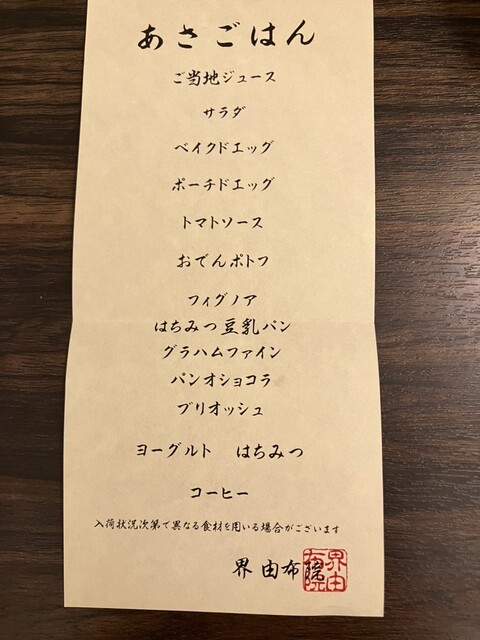 あさごはん
ご当地ジュース
サラダ
ベイクドエッグ
ポーチドエッグ
トマトソース
おでんポトフ
フィグノア
はちみつ豆乳パン
グラハムファイン
パンオショコラ
ブリオッシュ
ヨーグルト　はちみつ
コーヒー
入荷状況次第で異なる食材を用いる場合がございます
界 由布院
界由布院